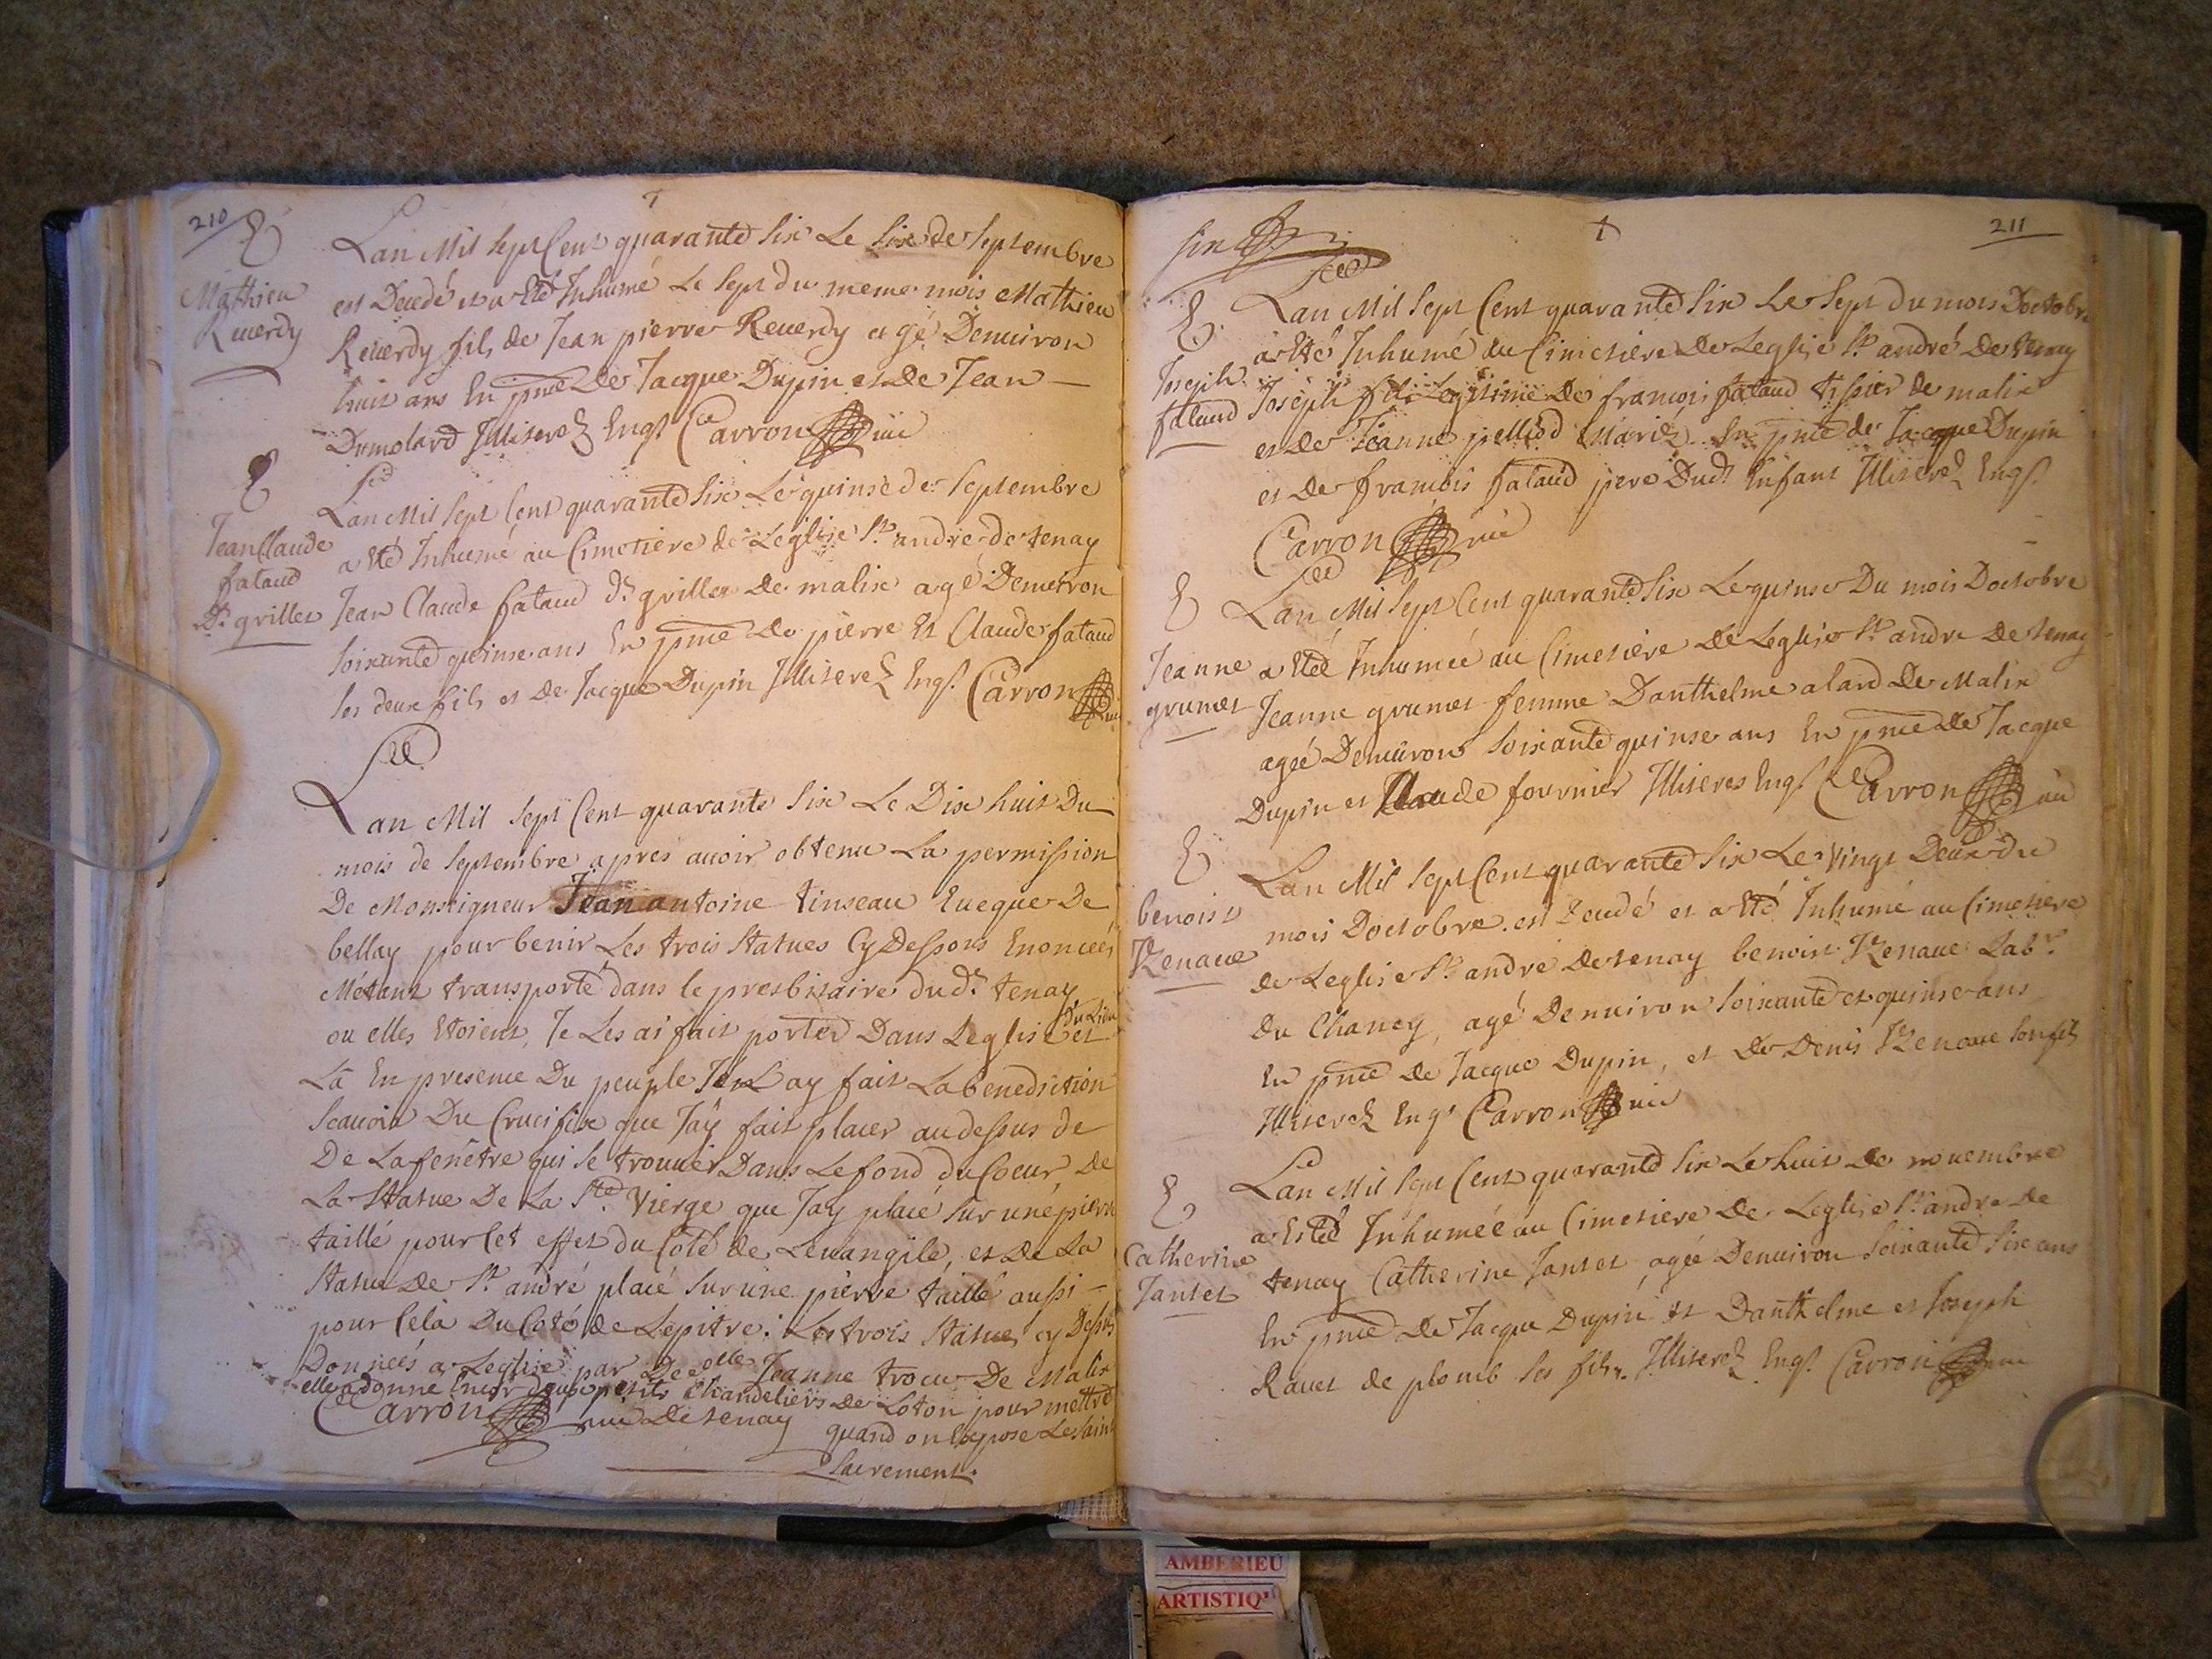 210
Lan Mil Sept Cent quarante Six Le Six de Septembre
Mathieu
Reuerdy
est Decedé et a Eté Inhumé Le Sept du meme mois Mathieu
Reuerdy fils de Jean pierre Reuerdy agé Denuiron
huit ans En pnce De Jacque Dupin et De Jean
Dumolard Illiterez Enqs Carron curé
Jean Claude
fataud
dt grillet
Lan Mil Sept Cent quarante Six Le quinse de Septembre
a Eté Inhumé au Cimetiere de Leglise St andre de tenay
Jean Claude fataud dt grillet de malix agé Denuiron
Soixante quinse ans En pnce De pierre Et Claude fataud
Ses deux fils et De Jacque Dupin Illiterez Enqs. Carron curé
Lan Mil Sept Cent quarante Six Le Dix huit Du
mois de Septembre apres auoir obtenu La permission
De Monseigneur Jean antoine tinseau Eueque De
bellay pour benir Les trois Statues Cy Dessous Enonceés
Métant transporté dans le presbitaire dud. tenay
ou elles Etoient, Je Les ai fait porter Dans Leglise du Lieu et
La En presence Du peuple Jen ay fait La benediction
Scauoir Du Crucifix que Jay fait placer au dessus de
De La fenêtre qui Se trouue Dans Le fond du Coeur, De
La Statue De La Ste. Vierge que Jay placé Sur une pierre
taillé pour Cet effet du Coté de Leuangile, et de La
Statue De St andré placé Sur une pierre taille aussi
pour Cela Du Coté de Lepitre. Les trois Statues cy Dessus
Donneés a Leglise par Delle Jeanne trocu De Malix
elle a donné Encor deux petits Chandeliers De Loton pour mettre
Carron curé De tenay quand on Expose Le Saint
Sacrement.
211
Six
Lan Mil Sept Cent quarante Six Le Sept du mois Doctobre
Joseph
fataud
a Eté Inhumé au Cimetiere De Leglise St andré De tenay
Joseph fils Legitime De francois fataud tissier de malix
et De Jeanne pelliod Mariéz En pnce de Jacque Dupin
et De francois fataud pere Dudt Enfant Illiterez Enqs.
Carron curé
Lan Mil Sept Cent quarante Six Le quinse Du mois Doctobre
Jeanne
grumet
a Eté Inhumée au Cimetiere De Leglise St andre De tenay
Jeanne grumet femme Danthelme alard De Malix
agée Denuiron Soixante quinse ans En pnce De Jacque
Dupin et Claude fournier Illiteres Enqs Carron curé
Lan Mil Sept Cent quarante Six Le Vingt Deux du
benoist
Renaue
mois Doctobre est Decedé et a Eté Inhumé au Cimetiere
de Leglise St andré De tenay benoist Renaue Labr.
du Chaney, agé Denuiron Soixante et quinse ans
En pnce De Jacque Dupin, et De Denis Renaue Son fils
Illiterez Enqs Carron curé
Lan Mil Sept Cent quarante Six Le huit De nouembre
Catherine
Jantet
a Eté Inhumée au Cimetiere De Leglise St andre de
tenay Catherine Jantet, agée Denuiron Soixante Six ans
En pnce De Jacque Dupin et Danthelme et Joseph
Rauet de plomb Ses fils. Illiterez Enqs. Carron curé
AMBERIEU
ARTISTIQ